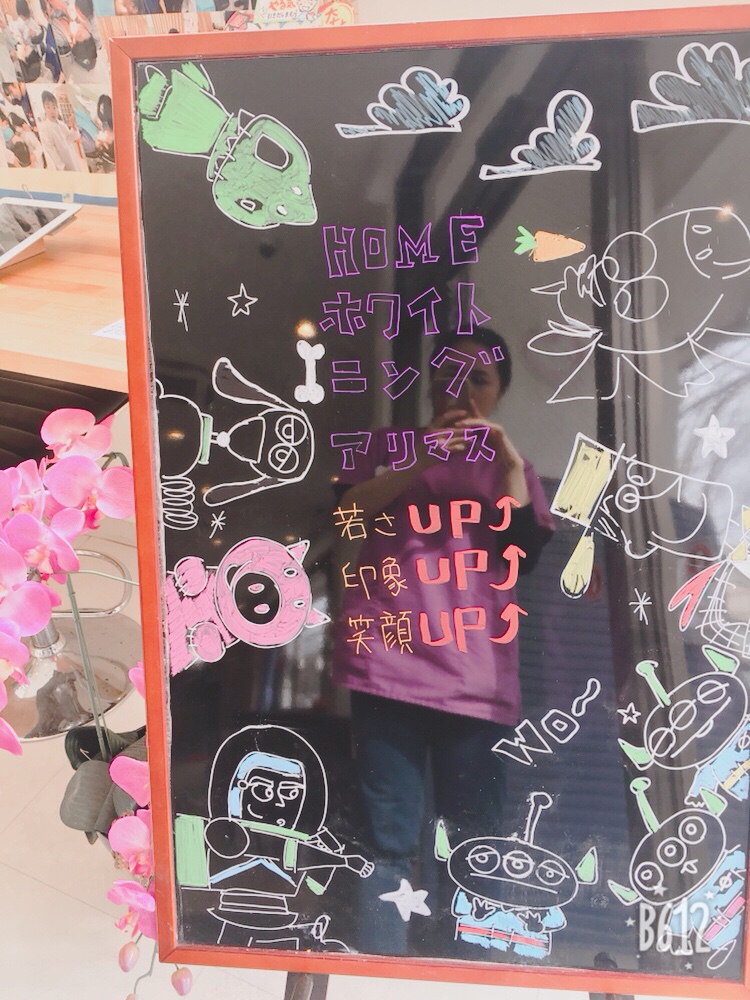 HOME
ホワイト
ニング
アリマス
若さUP⤴
印象UP⤴
笑顔UP⤴
Wo~
B612